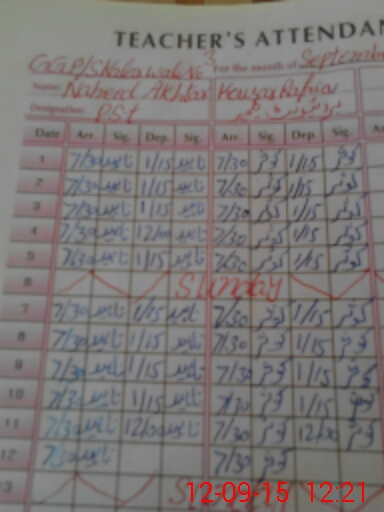 TEACHER'S ATTENDAN
GGP/S No 3 For the month of September
Name: Naheed Akhtar Kousar
Designation: PSt
Date Arr. Sig. Dep. Sig. Arr. Sig. Dep. Sig. Ar
1 7/30 ناہید 1/15 ناہید 7/30 کوثر 1/15 کوثر
2 7/30 ناہید 1/15 ناہید 7/30 کوثر 1/15 کوثر
3 7/30 ناہید 1/15 ناہید 7/30 کوثر 1/15 کوثر
4 7/30 ناہید 12/00 ناہید 7/30 کوثر 1/15 کوثر
5 7/30 ناہید 1/15 ناہید 7/30 کوثر 1/15 کوثر
6 Sunday
7 7/30 ناہید 1/15 ناہید 7/30 کوثر 1/15 کوثر
8 7/30 ناہید 1/15 ناہید 7/30 کوثر 1/15 کوثر
9 7/30 ناہید 1/15 ناہید 7/30 کوثر 1/15 کوثر
10 7/30 ناہید 1/15 ناہید 7/30 کوثر 1/15 کوثر
11 7/30 ناہید 12/00 ناہید 7/30 کوثر 12/00 کوثر
12 7/30 ناہید 7/30 کوثر
13
12-09-15 12:21